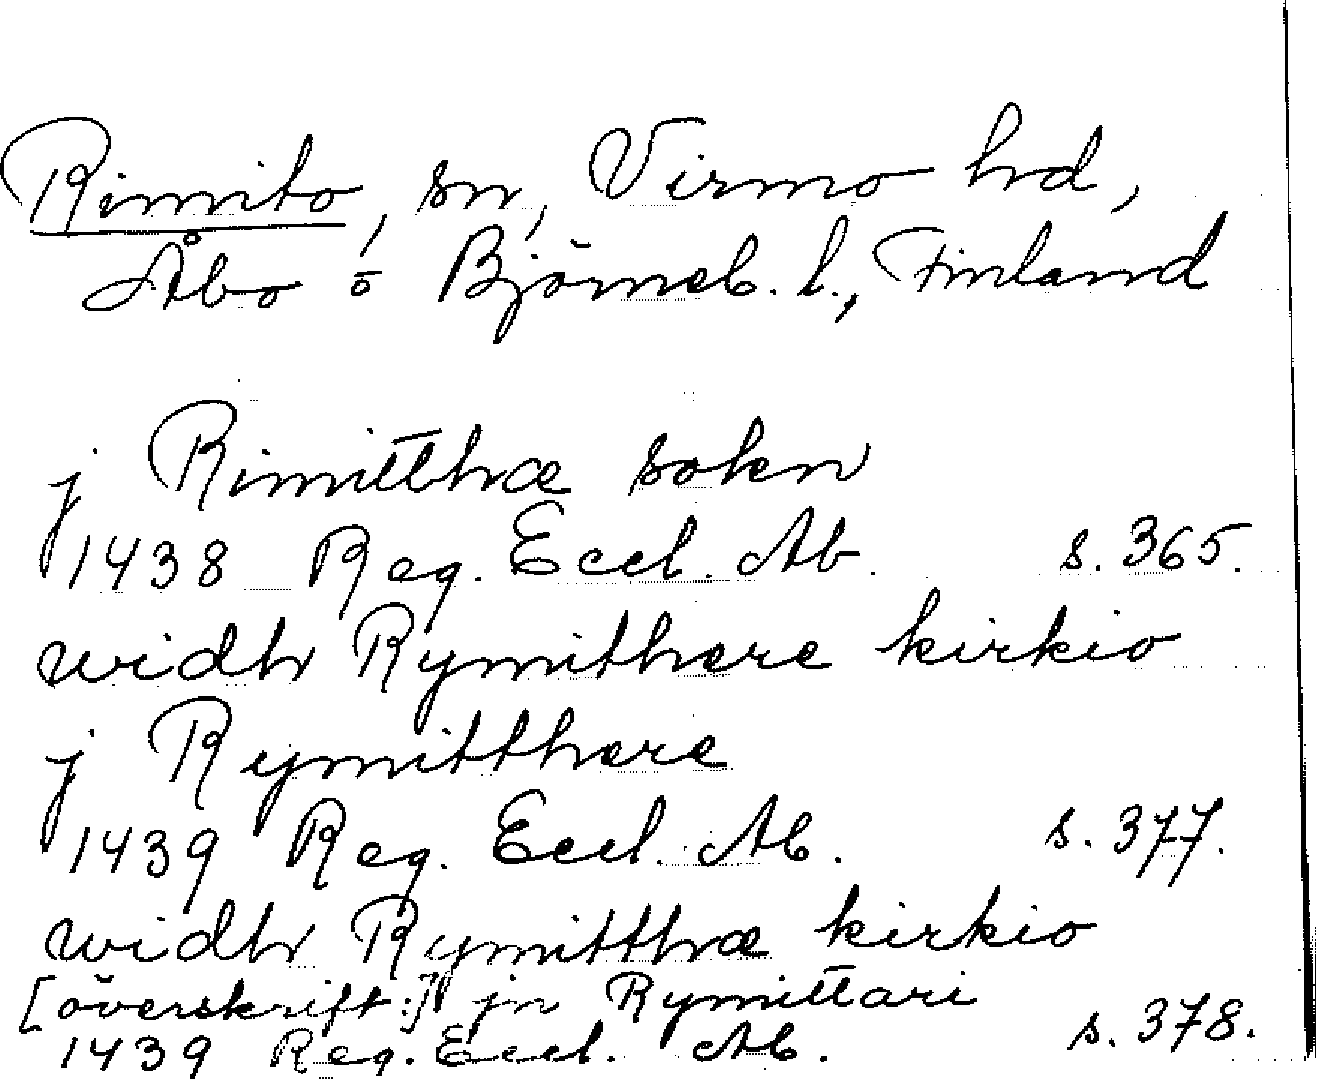 Rimito, sn, Virmo hd,
Åbo o Björneb. l., Finland
j Rimitthæ sokn
1438 Reg. Eccl. Ab. s. 365.
widh Rymithære kirkio
j Rymitthære
1439 Reg. Eccl. Ab. s. 377.
widh Rymitthæ kirkio
[överskrift:] jn Rymittari
1439 Reg. Eccl. Ab. s. 378.